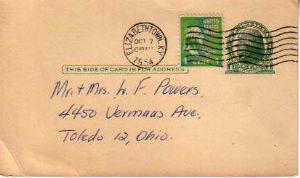 ELIZABETHTOWN, KY.
OCT 7
1954
UNITED STATES
THIS SIDE OF CARD IS FOR ADDRESS
Mr. + Mrs. W. F. Powers
4450 Vermaas Ave.
Toledo 12, Ohio.